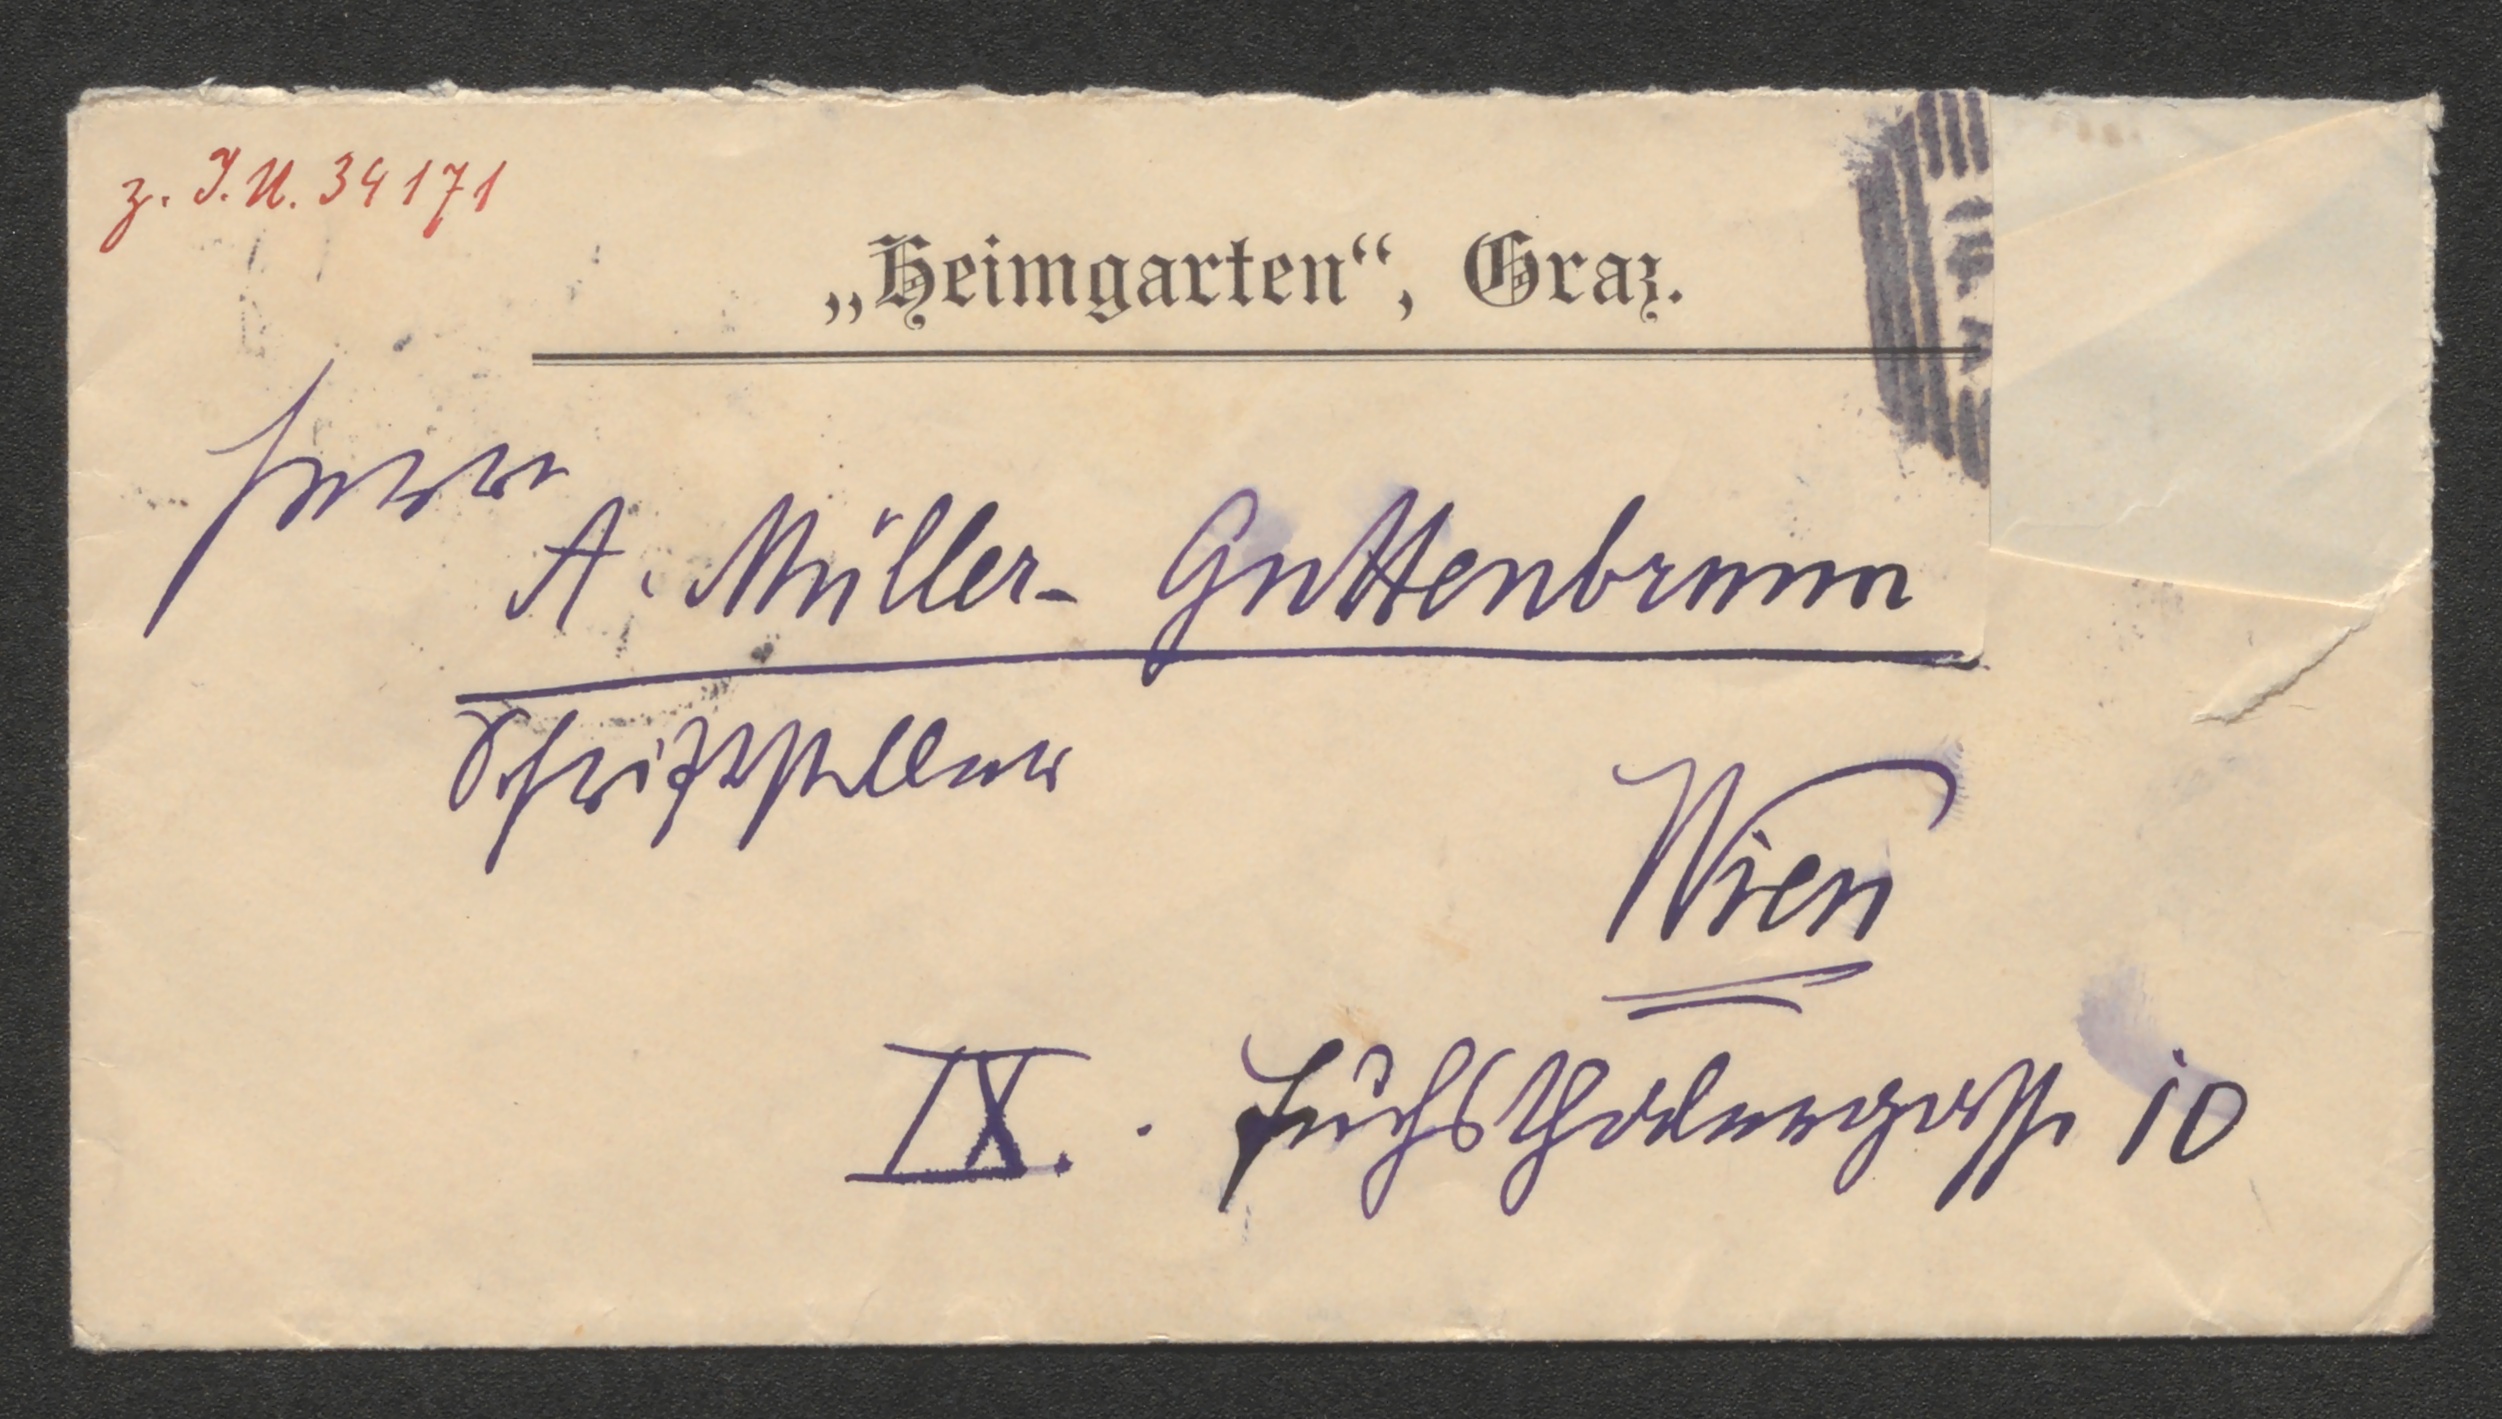 z. I.N. 34171
„Heimgarten“, Graz.
Herrn
A. Müller-Guttenbrunn
Schriftsteller
Wien
IX. Fuchsthalergasse 10